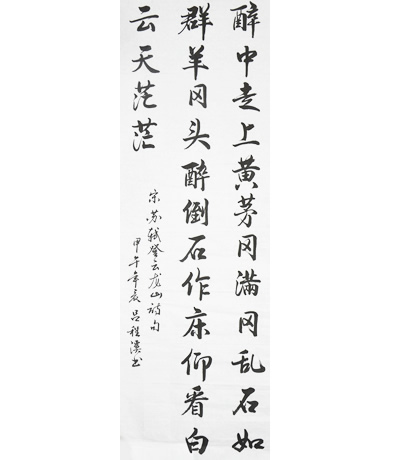 醉中走上黄茅冈满冈乱石如
群羊冈头醉倒石作床仰看白
云天茫茫
宋苏轼登云龙山诗句
甲午年袁吕程溪书